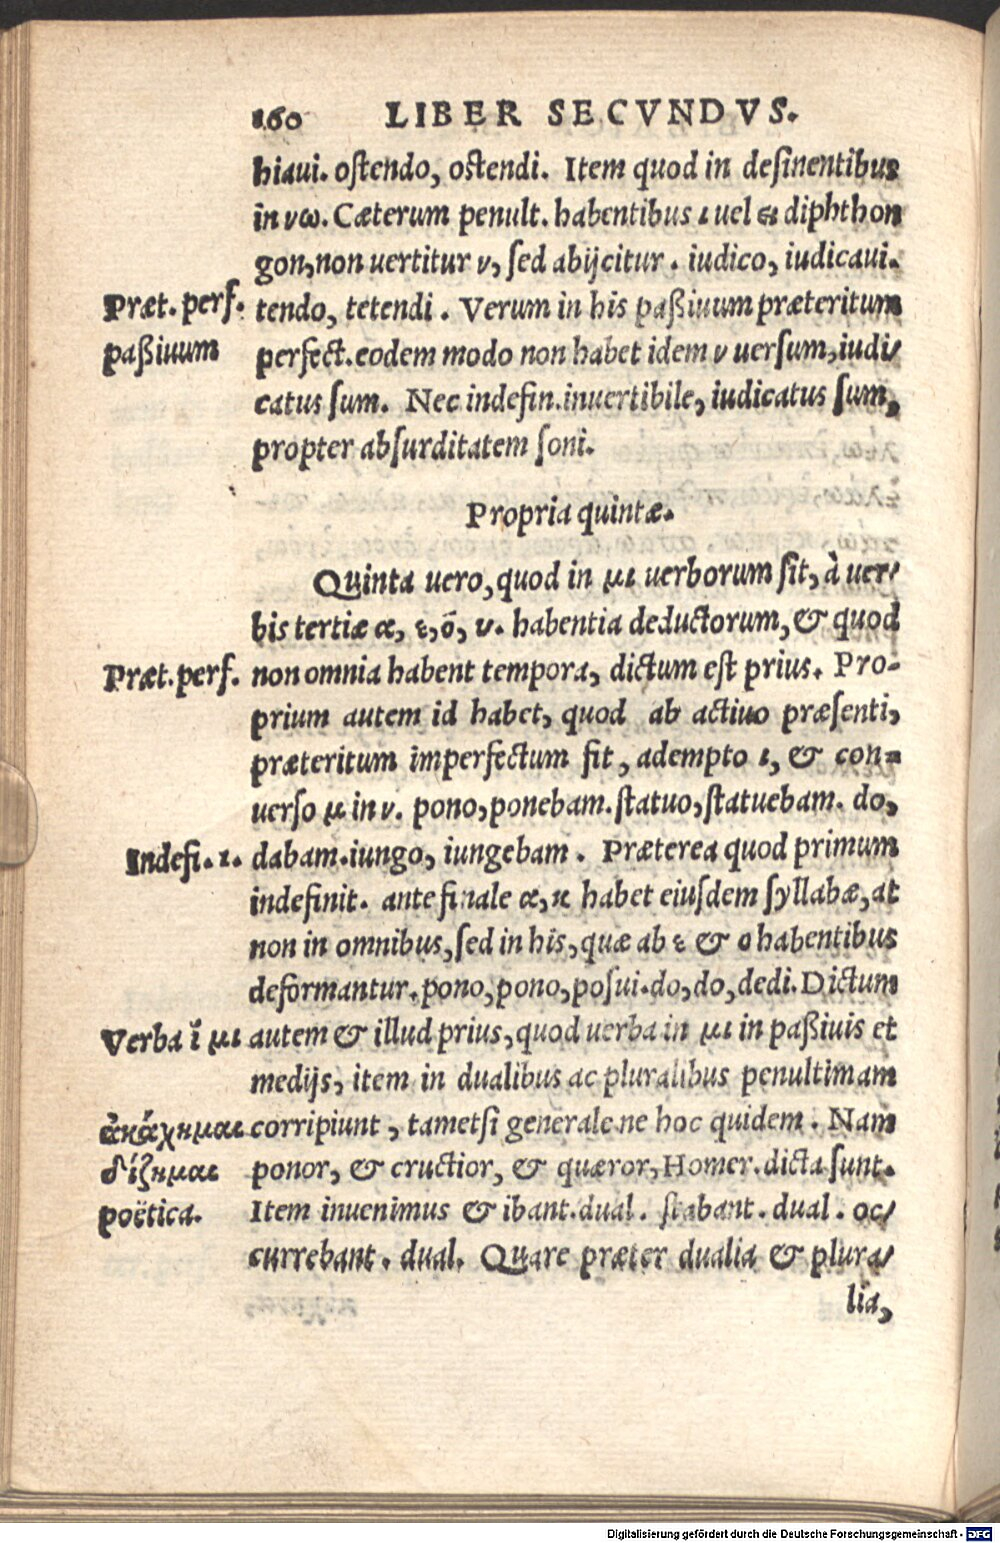 160 LIBER SECVNDVS.
hiaui. ostendo, ostendi. Item quod in desinentibus
in νω. Cæterum penult. habentibus ι uel ει diphthon
gon, non uertitur ν, sed abijcitur. iudico, iudicaui.
Præt. perf. tendo, tetendi. Verum in his paßiuum præteritum
paßiuum perfect. eodem modo non habet idem ν uersum, iudi/
catus sum. Nec indefin. inuertibile, iudicatus sum,
propter absurditatem soni.
Propria quintæ.
Quinta uero, quod in μι uerborum sit, à uer/
bis tertiæ α, ε, ο, υ. habentia deductorum, & quod
Præt. perf. non omnia habent tempora, dictum est prius. Pro-
prium autem id habet, quod ab actiuo præsenti,
præteritum imperfectum fit, adempto ι, & con-
uerso μ in ν. pono, ponebam. statuo, statuebam. do,
Indefi. 1. dabam. iungo, iungebam. Præterea quod primum
indefinit. ante finale α, κ habet eiusdem syllabæ, at
non in omnibus, sed in his, quæ ab ε & ο habentibus
deformantur. pono, pono, posui. do, do, dedi. Dictum
Verba ĩ μι autem & illud prius, quod uerba in μι in paßiuis et
medijs, item in dualibus ac pluralibus penultimam
ἀκάχημαι corripiunt, tametsi generale ne hoc quidem. Nam
δίζημαι ponor, & cructior, & quæror, Homer. dicta sunt.
poëtica. Item inuenimus & ibant. dual. stabant. dual. oc/
currebant. dual. Quare præter dualia & plura/
lia,
Digitalisierung gefördert durch die Deutsche Forschungsgemeinschaft - DFG